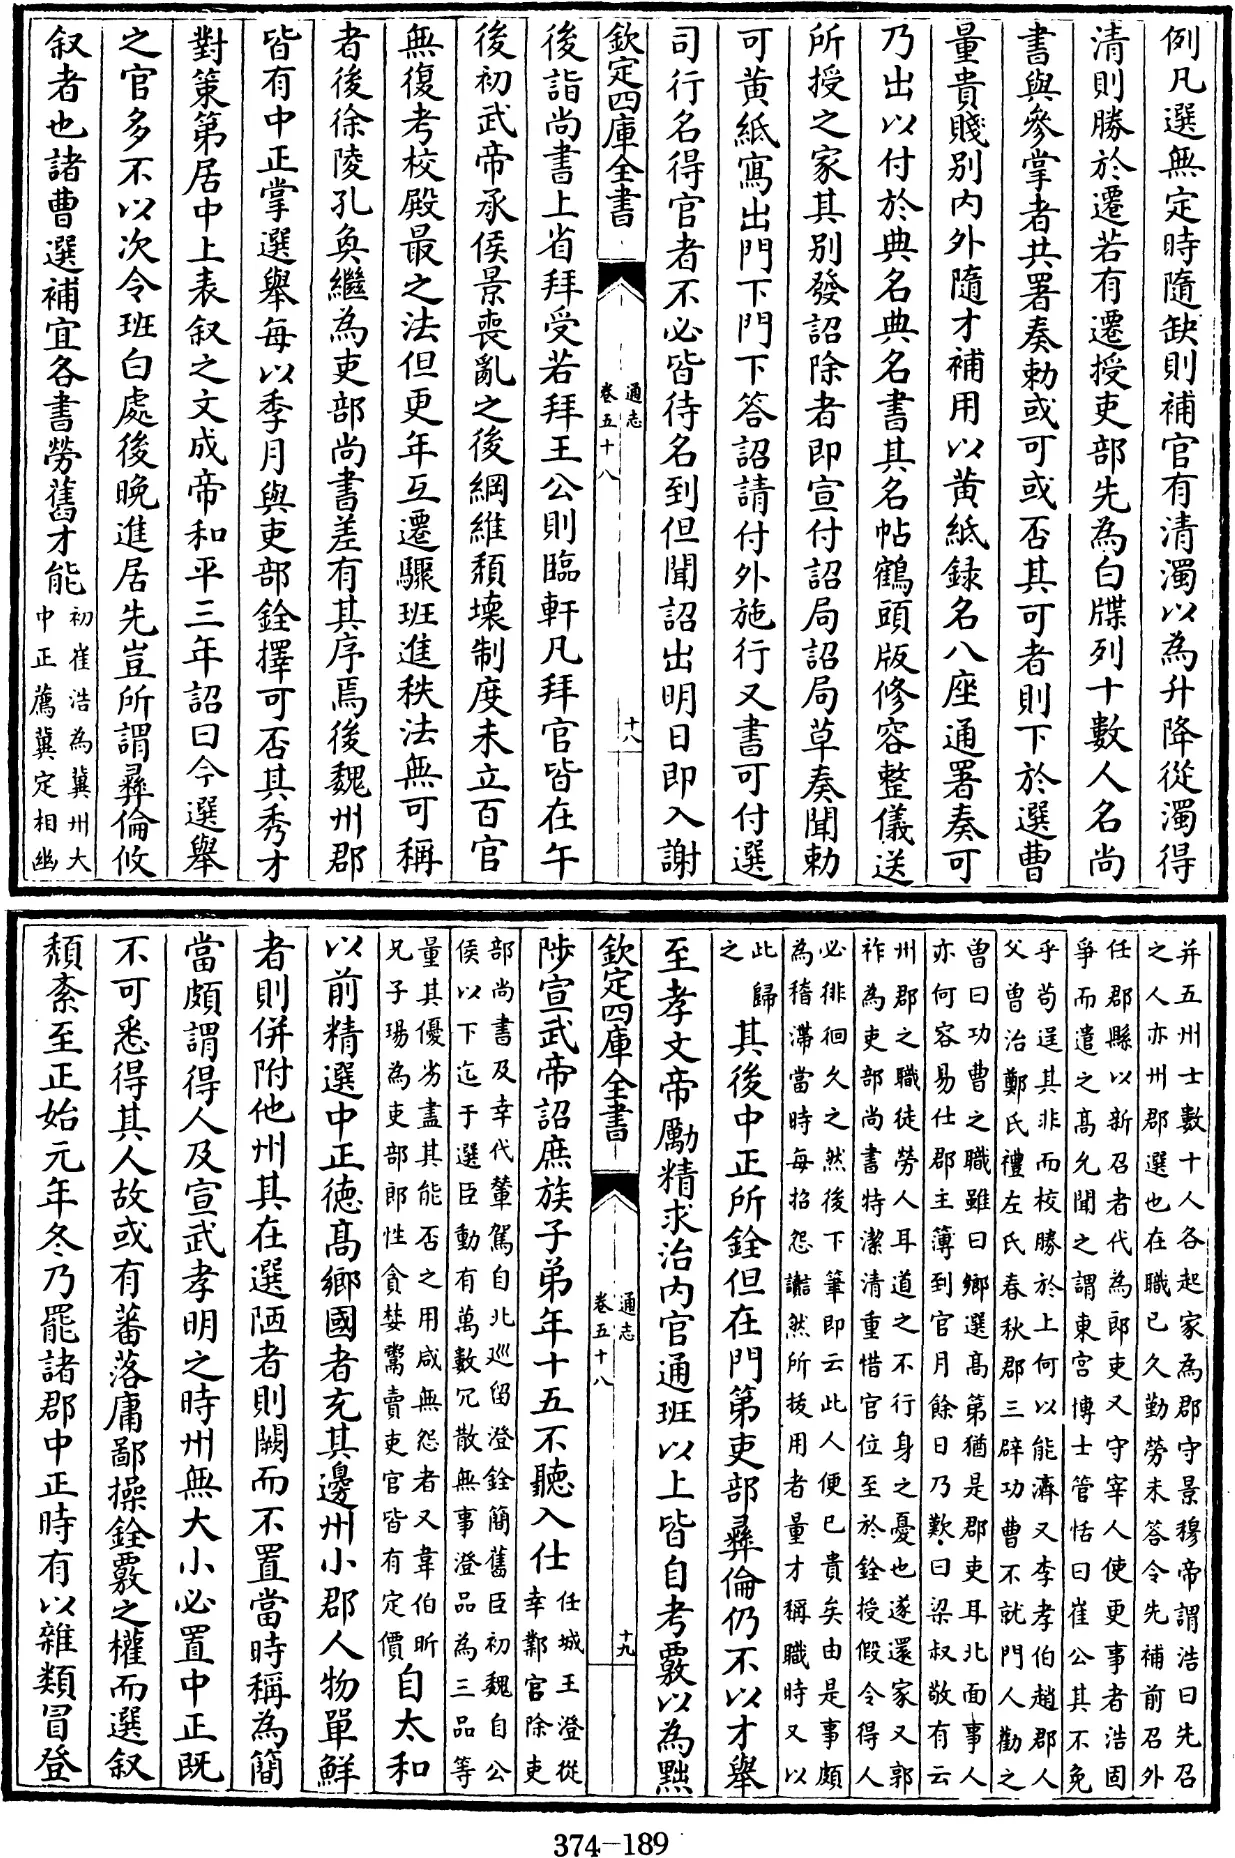 例凡選無定時隨缺則補官有清濁以為升降從濁得
清則勝於遷若有遷授吏部先為白牒列十數人名尚
書與參掌者共署奏勅或可或否其可者則下於選曹
量貴賤别内外隨才補用以黄紙録名八座通署奏可
乃出以付於典名典名書其名帖鶴頭版修容整儀送
所授之家其别發詔除者即宣付詔局詔局草奏聞勅
可黄紙寫出門下門下答詔請付外施行又書可付選
司行名得官者不必皆待名到但聞詔出明日即入謝
欽定四庫全書
通志
卷五十八
十八
後詣尚書上省拜受若拜王公則臨軒凡拜官皆在午
後初武帝承侯景喪亂之後綱維頹壞制度未立百官
無復考校殿最之法但更年互遷驟班進秩法無可稱
者後徐陵孔奐繼為吏部尚書差有其序焉後魏州郡
皆有中正掌選舉每以季月與吏部銓擇可否其秀才
對策第居中上表叙之文成帝和平三年詔曰今選舉
之官多不以次令班白處後晚進居先豈所謂彞倫攸
叙者也諸曹選補宜各書勞舊才能
初崔浩為冀州大
中正薦冀定相幽
并五州士數十人各起家為郡守景穆帝謂浩曰先召
之人亦州郡選也在職已久勤勞未答令先補前召外
任郡縣以新召者代為郎吏又守宰人使更事者浩固
爭而遣之高允聞之謂東宫博士管恬曰崔公其不免
乎苟逞其非而校勝於上何以能濟又李孝伯趙郡人
父曾治鄭氏禮左氏春秋郡三辟功曹不就門人勸之
曾曰功曹之職雖曰鄉選高第猶是郡吏耳北面事人
亦何容易仕郡主簿到官月餘日乃歎曰梁叔敬有云
州郡之職徒勞人耳道之不行身之憂也遂還家又郭
祚為吏部尚書特潔清重惜官位至於銓授假令得人
必徘徊久之然後下筆即云此人便已貴矣由是事頗
為稽滯當時每招怨讟然所拔用者量才稱職時又以
此歸
之
其後中正所銓但在門第吏部彞倫仍不以才舉
至孝文帝勵精求治内官通班以上皆自考覈以為黜
欽定四庫全書
通志
卷五十八
十九
陟宣武帝詔庶族子弟年十五不聽入仕
任城王澄從
幸鄴官除吏
部尚書及幸代輦駕自北巡留澄銓簡舊臣初魏自公
侯以下迄于選臣動有萬數冗散無事澄品為三品等
量其優劣盡其能否之用咸無怨者又韋伯昕
兄子瑒為吏部郎性貪婪鬻賣吏官皆有定價
自太和
以前精選中正德高鄉國者充其邊州小郡人物單鮮
者則併附他州其在選陋者則闕而不置當時稱為簡
當頗謂得人及宣武孝明之時州無大小必置中正既
不可悉得其人故或有蕃落庸鄙操銓覈之權而選叙
頹紊至正始元年冬乃罷諸郡中正時有以雜類冒登
374-189